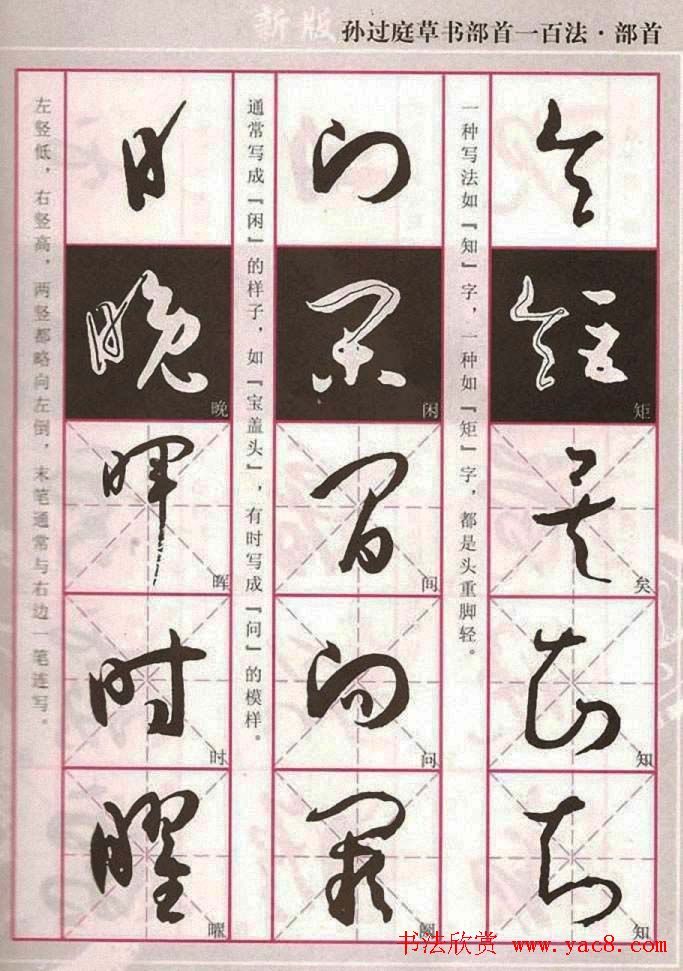 新版 孙过庭草书部首一百法·部首
矢
矩
矩
矣
矣
知
知
知
知
一种写法如『知』字，一种如『矩』字，都是头重脚轻。
门
闲
闲
间
间
问
问
阙
通常写成『闲』的样子，如『宝盖头』，有时写成『问』的模样。
日
晚
晚
晖
晖
时
时
曜
曜
左竖低，右竖高，两竖都略向左倒，末笔通常与右边一笔连写。
书法欣赏 www.yac8.com